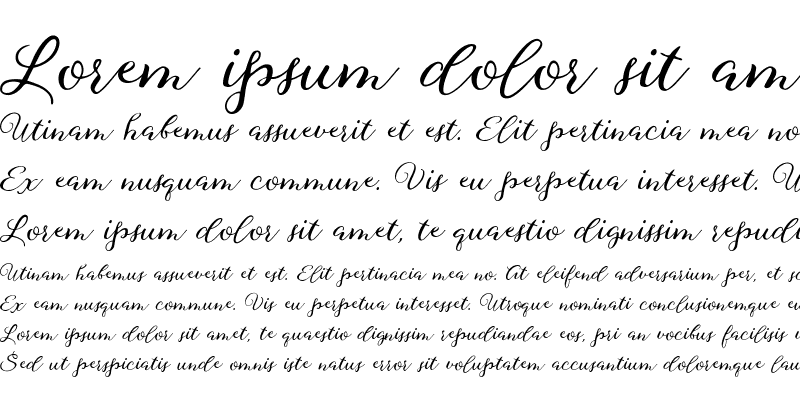 Lorem ipsum dolor sit am
Utinam habemus assueverit et est. Elit pertinacia mea no
Ex eam nusquam commune. Vis eu perpetua interesset. U
Lorem ipsum dolor sit amet, te quaestio dignissim repudi
Utinam habemus assueverit et est. Elit pertinacia mea no. At eleifend adversarium per, et sc
Ex eam nusquam commune. Vis eu perpetua interesset. Utroque nominati conclusionemque eu
Lorem ipsum dolor sit amet, te quaestio dignissim repudiandae eos, pri an vocibus facilisis u
Sed ut perspiciatis unde omnis iste natus error sit voluptatem accusantium doloremque lau